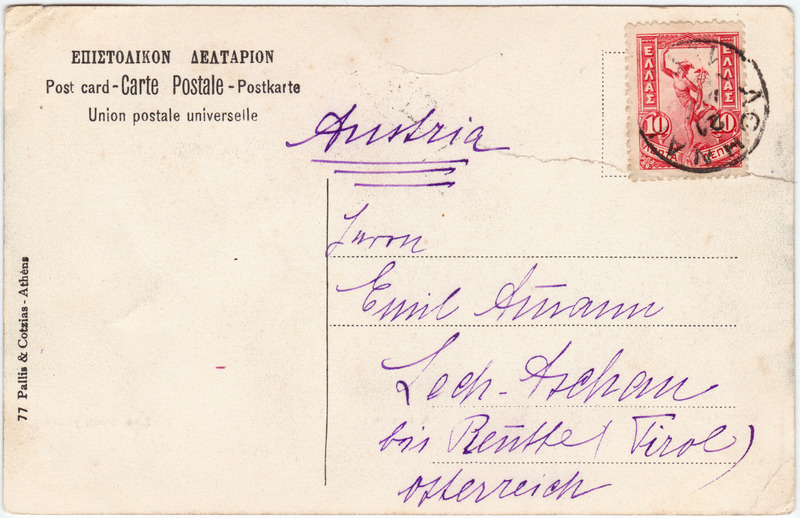 ΕΠΙΣΤΟΛΙΚΟΝ ΔΕΛΤΑΡΙΟΝ
Post card - Carte Postale - Postkarte
Union postale universelle
Austria
ΕΛΛΑΣ ΕΛΛΑΣ
10 10
Herrn
Emil Amann
Lech-Aschau
bei Reutte (Tirol)
Österreich
77 Pallis & Cotzias - Athènes